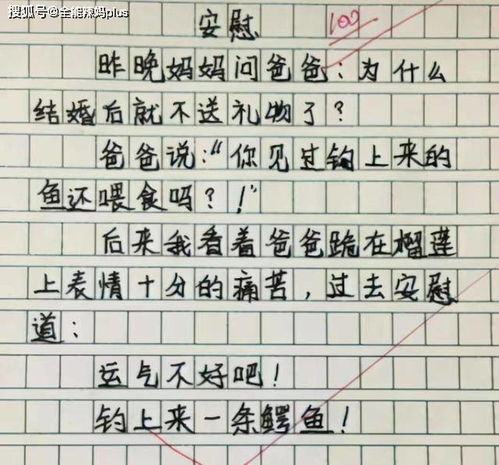 搜狐号@全能辣妈plus
安慰
昨晚妈妈问爸爸:为什么
结婚后就不送礼物了?
爸爸说:“你见过钓上来的
鱼还喂食吗?!”
后来我看着爸爸跪在榴莲
上表情十分的痛苦,过去安慰
道:
运气不好吧!
钓上来一条鳄鱼!